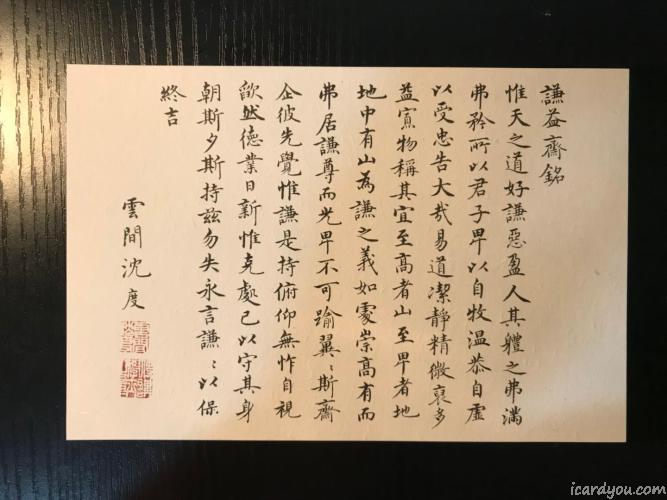 謙益齋銘
惟天之道好謙惡盈人其體之弗滿
弗矜所以君子卑以自牧溫恭自虛
以受忠告大哉易道潔靜精微裒多
益寡物稱其宜至高者山至卑者地
地中有山為謙之義如處崇高有而
弗居謙尊而光卑不可踰翼〻斯齋
企彼先覺惟謙是持俯仰無怍自視
歉然德業日新惟克處己以守其身
朝斯夕斯持茲勿失永言謙〻以保
終吉
雲間沈度
icardyou.com